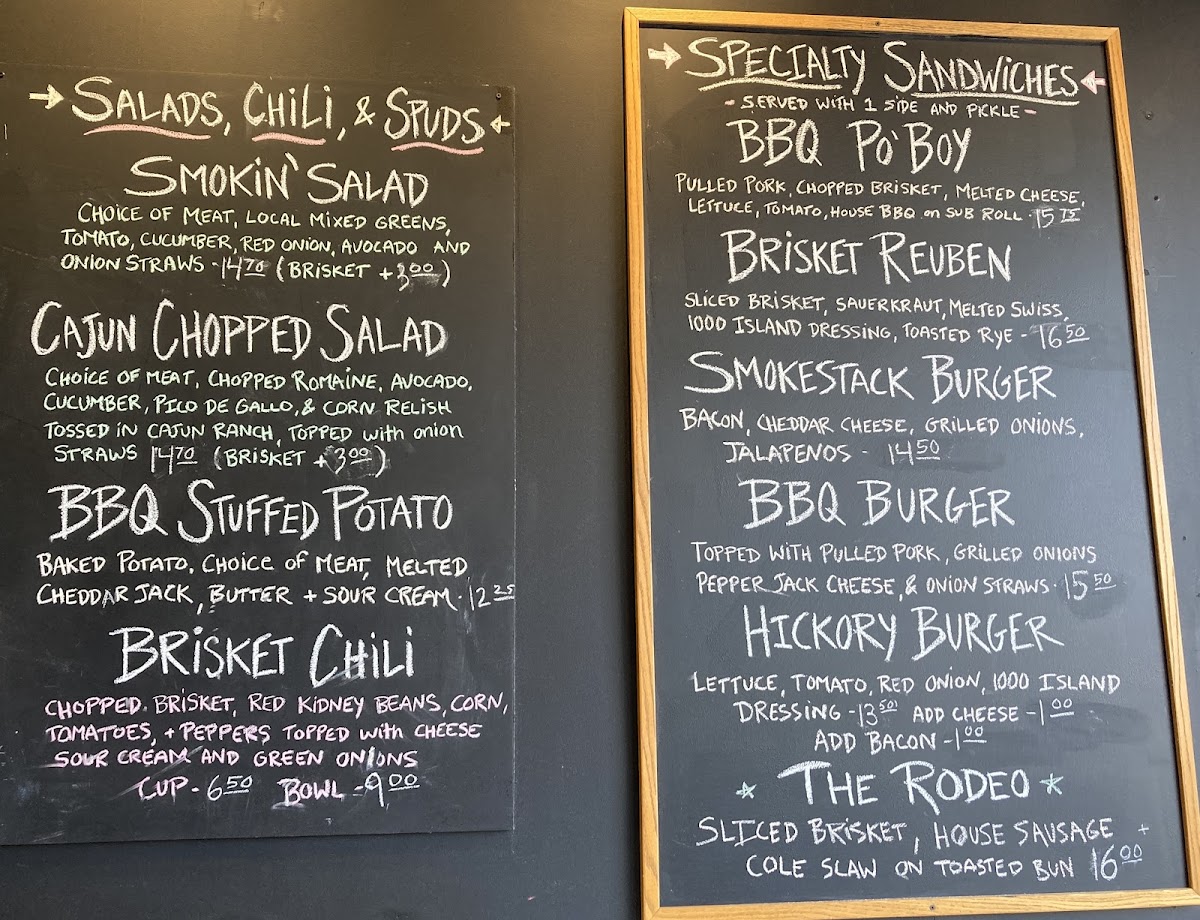 → SALADS, CHILI, & SPUDS ←
SMOKIN' SALAD
CHOICE OF MEAT, LOCAL MIXED GREENS,
TOMATO, CUCUMBER, RED ONION, AVOCADO AND
ONION STRAWS - 14 70 (BRISKET + 3 00)
CAJUN CHOPPED SALAD
CHOICE OF MEAT, CHOPPED ROMAINE, AVOCADO,
CUCUMBER, PICO DE GALLO, & CORN RELISH
TOSSED IN CAJUN RANCH, TOPPED with onion
STRAWS 14 70 (BRISKET + 3 00)
BBQ STUFFED POTATO
BAKED POTATO, CHOICE of MEAT, MELTED
CHEDDAR JACK, BUTTER + SOUR CREAM - 12 25
BRISKET CHILI
CHOPPED BRISKET, RED KIDNEY BEANS, CORN,
TOMATOES, + PEPPERS TOPPED with CHEESE
SOUR CREAM AND GREEN ONIONS
CUP - 6 50 BOWL - 9 00
→ SPECIALTY SANDWICHES ←
- SERVED WITH 1 SIDE AND PICKLE -
BBQ PO'BOY
PULLED PORK, CHOPPED BRISKET, MELTED CHEESE,
LETTUCE, TOMATO, HOUSE BBQ on SUB ROLL - 15 75
BRISKET REUBEN
SLICED BRISKET, SAUERKRAUT, MELTED SWISS,
1000 ISLAND DRESSING, TOASTED RYE - 16 50
SMOKESTACK BURGER
BACON, CHEDDAR CHEESE, GRILLED ONIONS,
JALAPENOS - 14 50
BBQ BURGER
TOPPED WITH PULLED PORK, GRILLED ONIONS
PEPPER JACK CHEESE, & ONION STRAWS - 15 50
HICKORY BURGER
LETTUCE, TOMATO, RED ONION, 1000 ISLAND
DRESSING - 13 50 ADD CHEESE - 1 00
ADD BACON - 1 00
☆ THE RODEO ☆
SLICED BRISKET, HOUSE SAUSAGE +
COLE SLAW ON TOASTED BUN 16 00